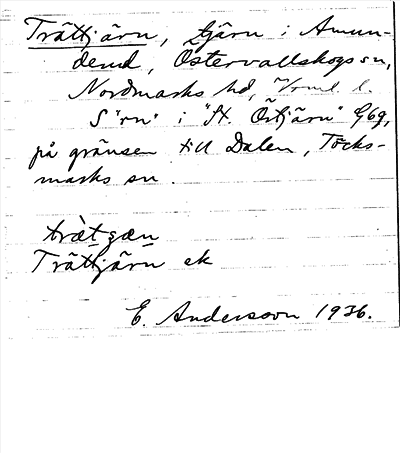 Trättjärn, tjärn i Amun-
derud, Östervallskogs sn,
Nordmarks hd, Vrml. l.
S "rn" i "St. Östjärn" Gbg,
på gränsen till Dalen, Töcks-
marks sn.
tràtʂæn
Trättjärn ek
E. Andersson 1936.